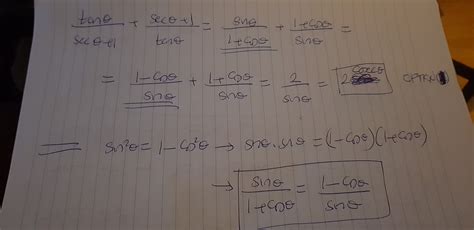 tanθ/(secθ+1) + (secθ+1)/tanθ = sinθ/(1+cosθ) + (1+cosθ)/sinθ =
= (1-cosθ)/sinθ + (1+cosθ)/sinθ = 2/sinθ = 2 cosecθ
sin²θ = 1-cos²θ → sinθ.sinθ = (1-cosθ)(1+cosθ)
→ sinθ/(1+cosθ) = (1-cosθ)/sinθ